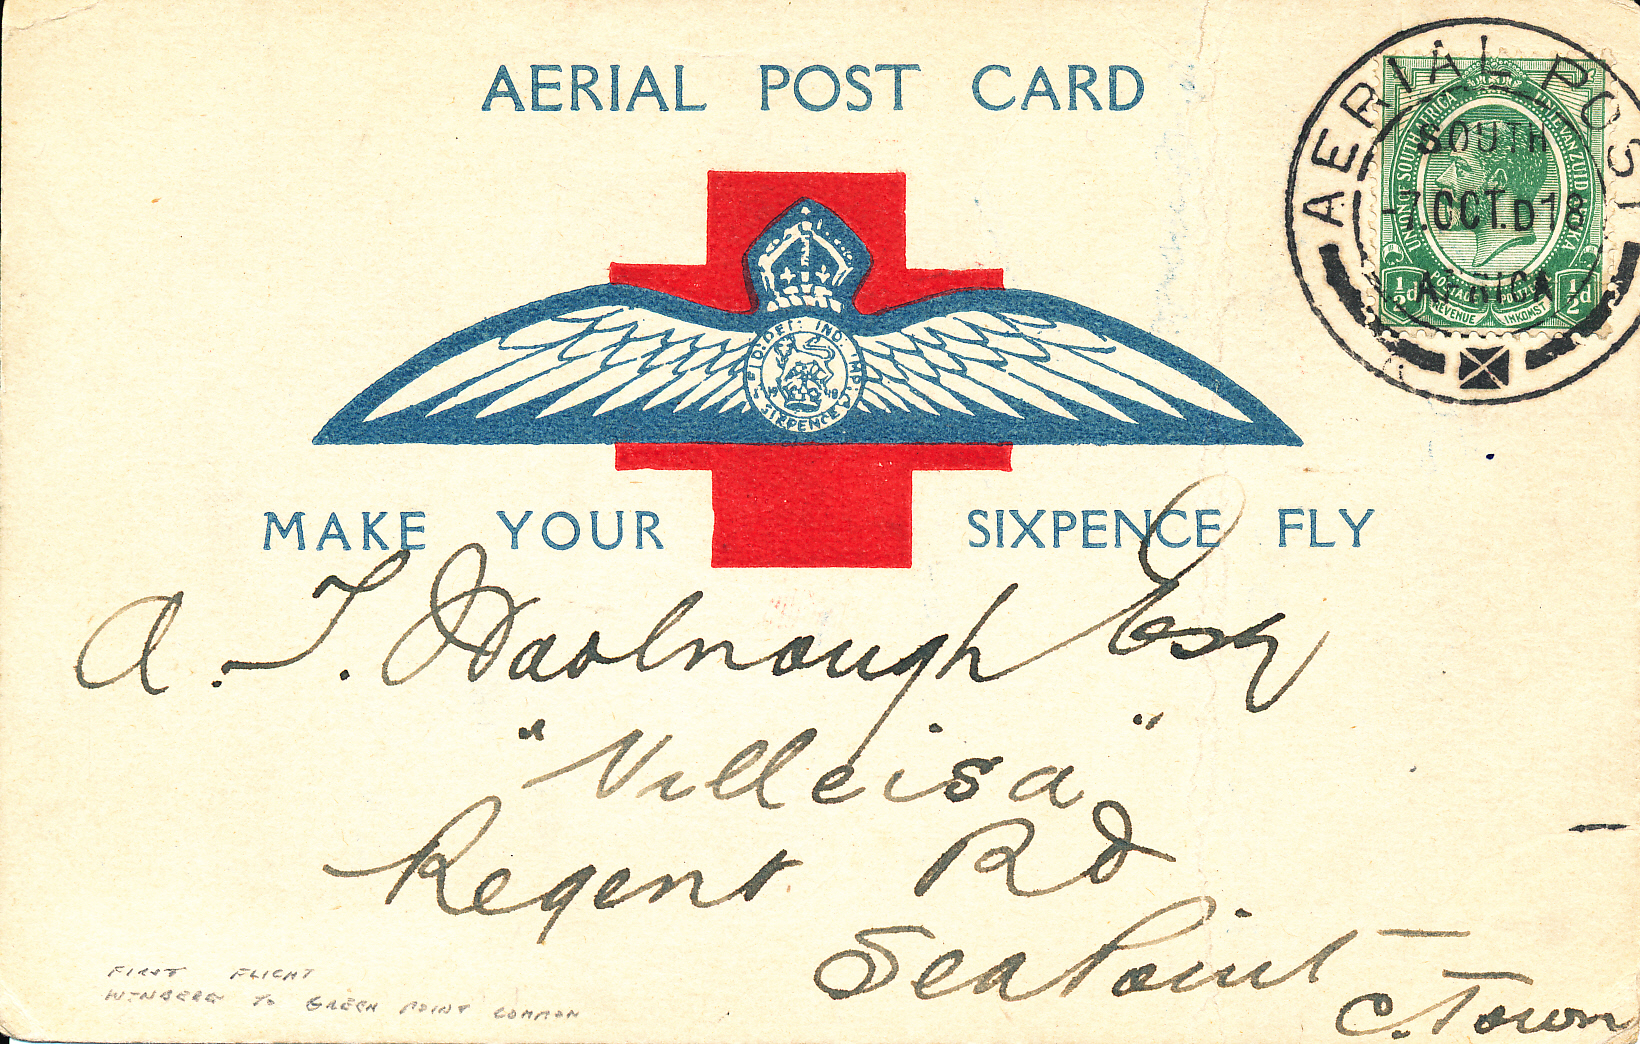 AERIAL POST CARD
AERIAL POST
SOUTH
-7.OCT.D18
AFRICA
UNION OF SOUTH AFRICA UNIE VAN ZUID AFRIKA
½d POSTAGE POSTZEGEL ½d
REVENUE INKOMST
FID: DEF: IND: IMP:
1918
SIXPENCE
MAKE YOUR SIXPENCE FLY
A. T. Woolnough Esq
"Villeisa"
Regent Rd
Sea Point
C. Town
FIRST FLIGHT
WYNBERG TO GREEN POINT COMMON